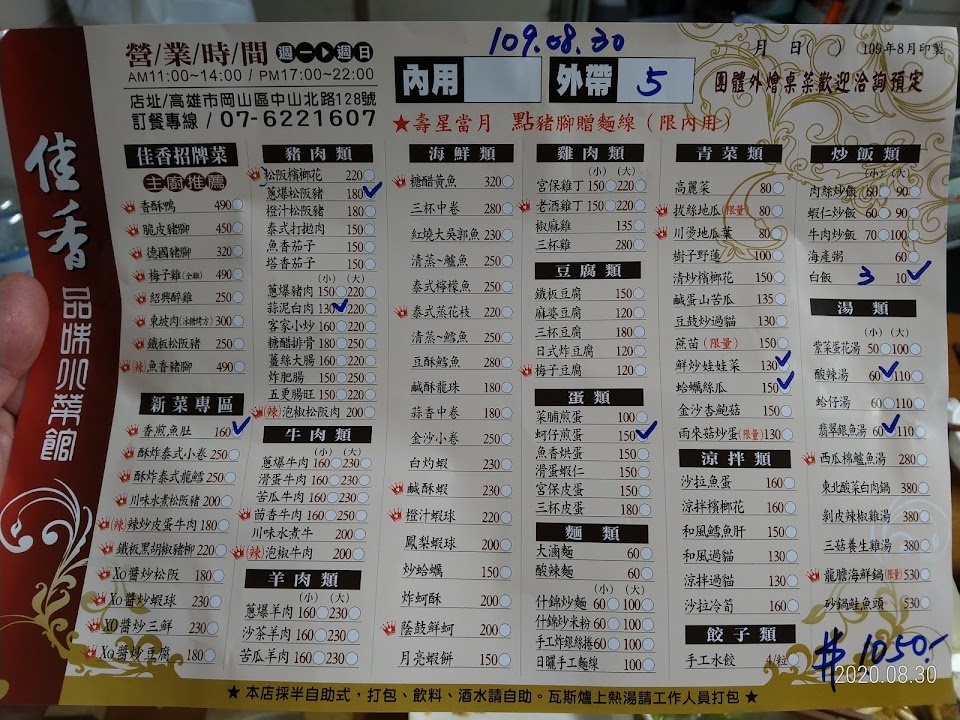 109.08.30
營/業/時/間 週一▶週日
月 日( ) 109年8月印製
AM11:00~14:00 / PM17:00~22:00
內用 外帶 5
團體外燴桌菜歡迎洽詢預定
店址/高雄市岡山區中山北路128號
訂餐專線 / 07-6221607
★壽星當月 點豬腳贈麵線(限內用)
佳香
品味小菜館
佳香招牌菜
主廚推薦
香酥鴨 490
脆皮豬腳 450
德國豬腳 320
梅子雞(全雞) 490
紹興醉雞 250
東坡肉(冰糖烤方) 300
鐵板松阪豬 250
(辣)魚香豬腳 490
新菜專區
香煎魚肚 160 ✓
酥炸泰式小卷 250
酥炸泰式龍鱈 250
川味水煮松阪豬 200
(辣)辣炒皮蛋牛肉 180
鐵板黑胡椒豬柳 220
Xo醬炒松阪 180
Xo醬炒蝦球 230
XO醬炒三鮮 230
Xo醬炒豆腐 180
豬肉類
松阪檳榔花 220
蔥爆松阪豬 180 ✓
橙汁松阪豬 180
泰式打拋肉 150
魚香茄子 150
塔香茄子 150
(小) (大)
蔥爆豬肉 150 220
蒜泥白肉 130 ✓ 220
客家小炒 160 220
糖醋排骨 180 250
薑絲大腸 160 220
炸肥腸 150 250
五更腸旺 150 220
(辣)泡椒松阪肉 200
牛肉類
(小) (大)
蔥爆牛肉 160 230
滑蛋牛肉 160 230
苦瓜牛肉 160 230
茴香牛肉 160 250
川味水煮牛 200
(辣)泡椒牛肉 200
羊肉類
(小) (大)
蔥爆羊肉 160 230
沙茶羊肉 160 230
苦瓜羊肉 160 230
海鮮類
糖醋黃魚 320
三杯中卷 280
紅燒大吳郭魚 230
清蒸~鱸魚 250
泰式檸檬魚 250
泰式蒸花枝 220
清蒸~鱈魚 250
豆酥鱈魚 280
鹹酥龍珠 180
蒜香中卷 180
金沙小卷 250
白灼蝦 230
鹹酥蝦 230
橙汁蝦球 220
鳳梨蝦球 200
炒蛤蠣 150
炸蚵酥 200
蔭鼓鮮蚵 200
月亮蝦餅 150
雞肉類
(小) (大)
宮保雞丁 150 220
老酒雞丁 150 220
椒麻雞 135
三杯雞 280
豆腐類
鐵板豆腐 150
麻婆豆腐 120
三杯豆腐 120
日式炸豆腐 120
梅子豆腐 120
蛋類
菜脯煎蛋 100
蚵仔煎蛋 150 ✓
魚香烘蛋 150
滑蛋蝦仁 150
宮保皮蛋 150
三杯皮蛋 180
麵類
大滷麵 60
酸辣麵 60
(小) (大)
什錦炒麵 60 100
什錦炒米粉 60 100
手工炸銀絲捲 60 100
日曬手工麵線 100
青菜類
高麗菜 80
拔絲地瓜(限量) 80
川燙地瓜葉 80
樹子野蓮 100
清炒檳榔花 150
鹹蛋山苦瓜 135
豆鼓炒過貓 130
蔴苗(限量) 150
鮮炒娃娃菜 130 ✓
蛤蠣絲瓜 150 ✓
金沙杏鮑菇 150
雨來菇炒蛋(限量) 130
涼拌類
沙拉魚蛋 160
涼拌檳榔花 160
和風鱈魚肝 150
和風過貓 130
涼拌過貓 130
沙拉冷筍 160
餃子類
手工水餃 4/粒
炒飯類
(小) (大)
肉絲炒飯 60 90
蝦仁炒飯 60 90
牛肉炒飯 70 100
海產粥 60
白飯 3 10 ✓
湯類
(小) (大)
紫菜蛋花湯 50 100
酸辣湯 60 ✓ 110
蛤仔湯 60 110
翡翠銀魚湯 60 ✓ 110
西瓜棉鱸魚湯 280
東北酸菜白肉鍋 380
剝皮辣椒雞湯 380
三菇養生雞湯 380
龍膽海鮮鍋(限量) 530
砂鍋鮭魚頭 530
$1050.-
2020.08.30
★本店採半自助式，打包、飲料、酒水請自助。瓦斯爐上熱湯請工作人員打包★